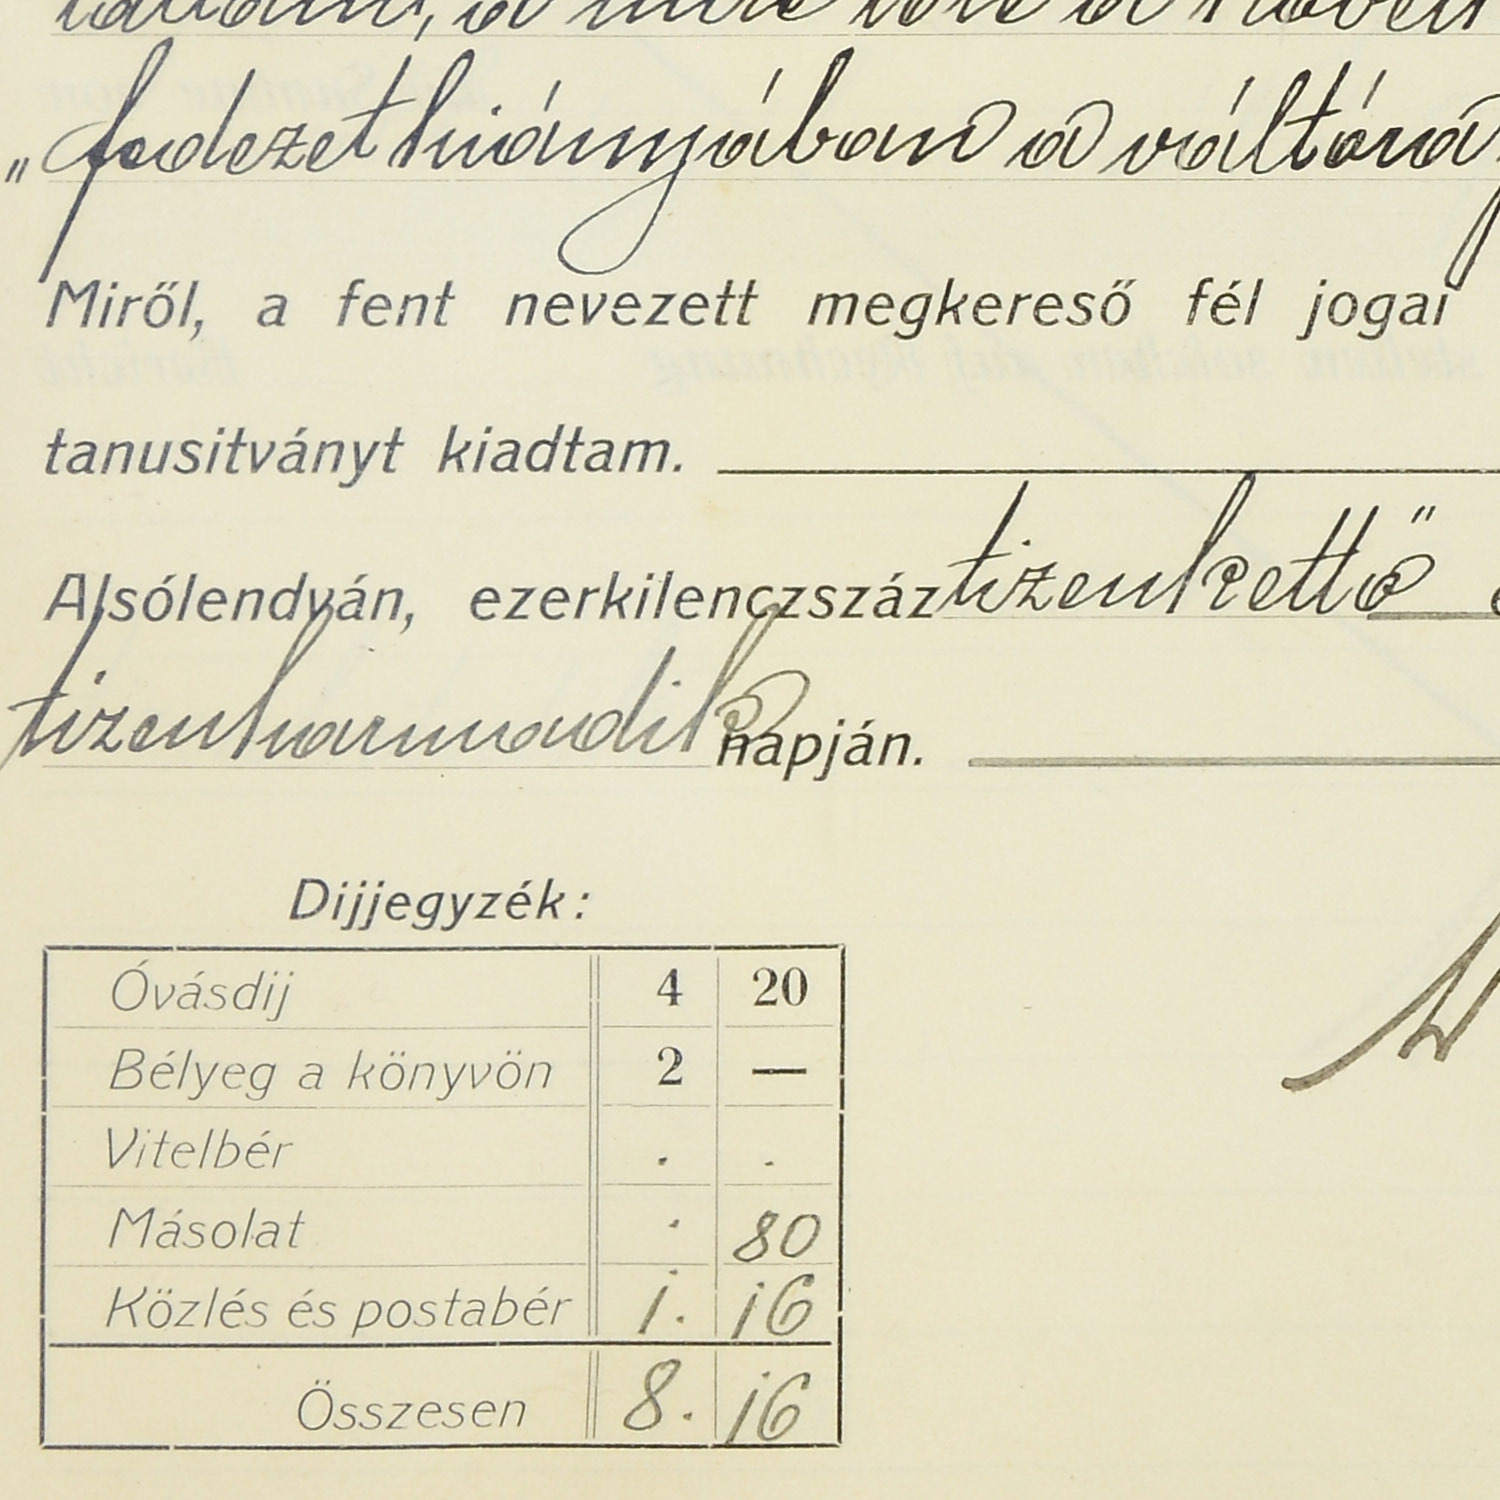 „fedezet hiányában a váltóra
Miről, a fent nevezett megkereső fél jogai
tanusitványt kiadtam.
Alsólendván, ezerkilenczszáz tizenkettő
tizenharmadik napján.
Dijjegyzék:
Óvásdij 4 20
Bélyeg a könyvön 2 —
Vitelbér . .
Másolat . 80
Közlés és postabér 1. 16
Összesen 8. 16